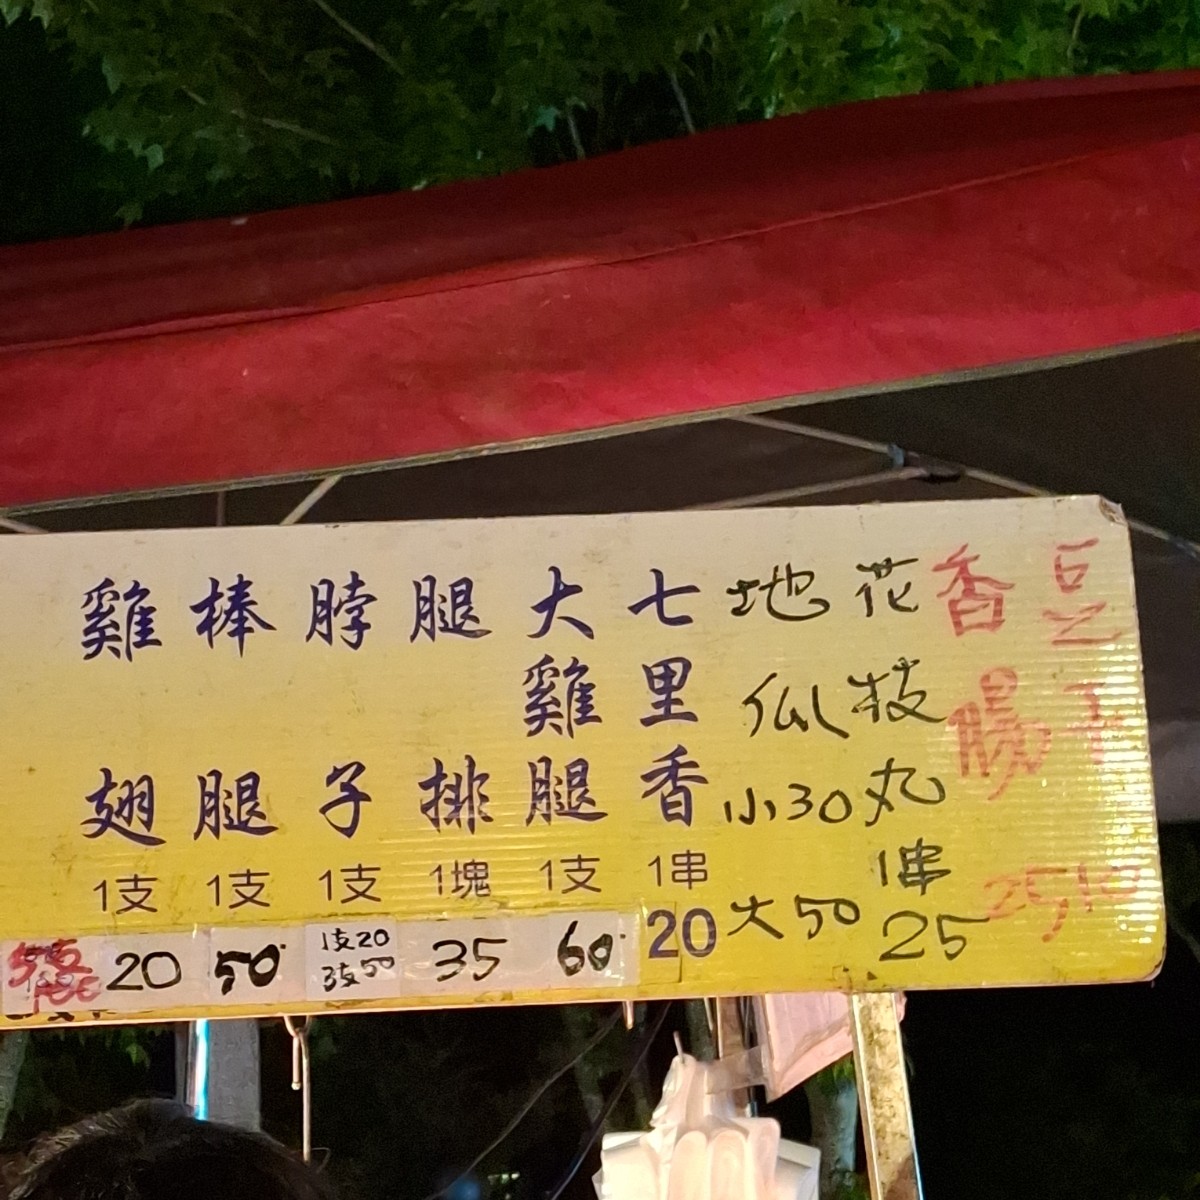 豆干
10
香腸
25
花枝丸
1串
25
地瓜
小30
大50
七里香
1串
20
大雞腿
1支
60
腿排
1塊
35
脖子
1支
1支20
3支50
棒腿
1支
50
雞翅
1支
20
5支
100